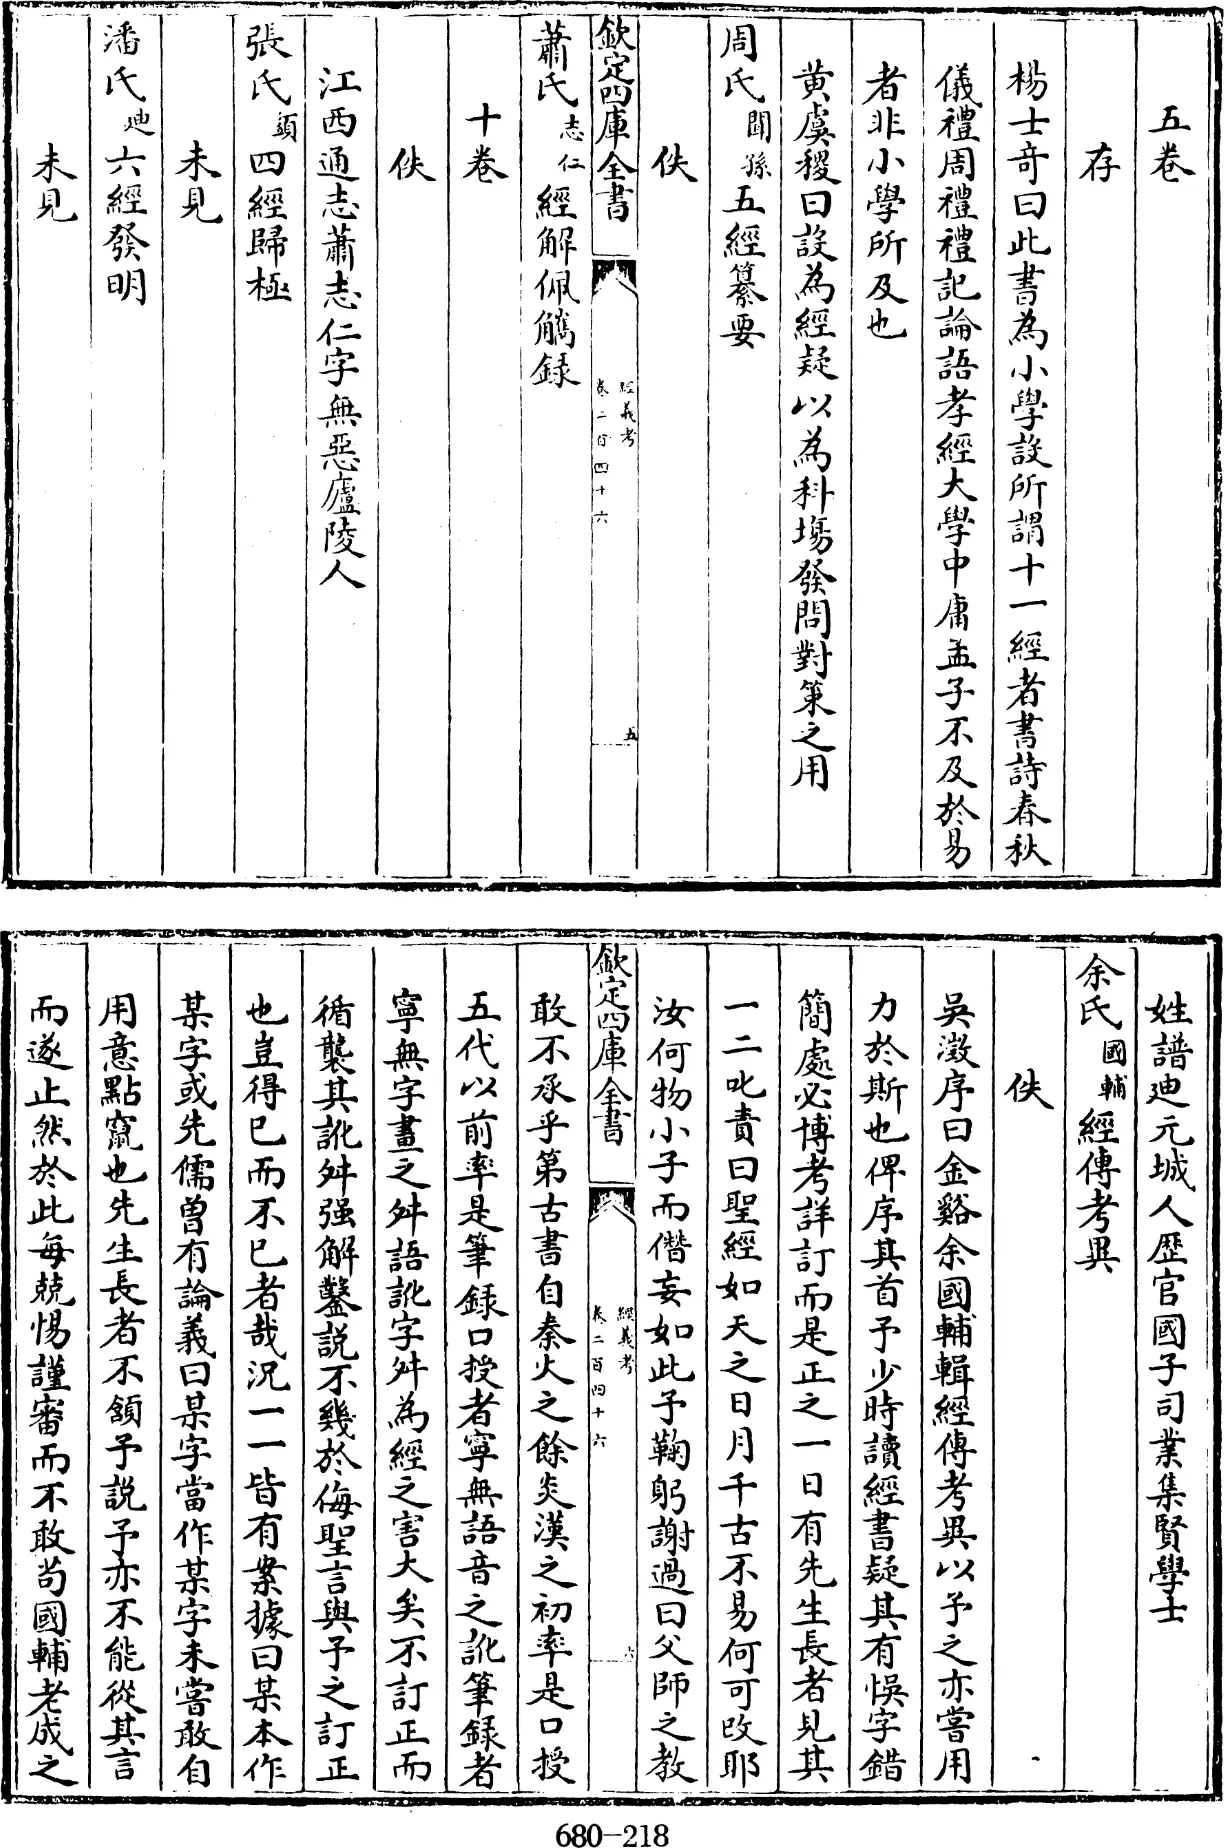 五卷
存
楊士竒曰此書為小學設所謂十一經者書詩春秋
儀禮周禮禮記論語孝經大學中庸孟子不及於易
者非小學所及也
黄虞稷曰設為經疑以為科塲發問對策之用
周氏聞孫五經纂要
佚
欽定四庫全書
經義考
卷二百四十六
五
蕭氏志仁經解佩觿録
十卷
佚
江西通志蕭志仁字無惡廬陵人
張氏頍四經歸極
未見
潘氏迪六經發明
未見
姓譜迪元城人歴官國子司業集賢學士
余氏國輔經傳考異
佚
吳澂序曰金谿余國輔輯經傳考異以予之亦嘗用
力於斯也俾序其首予少時讀經書疑其有悞字錯
簡處必博考詳訂而是正之一日有先生長者見其
一二叱責曰聖經如天之日月千古不易何可改耶
汝何物小子而僭妄如此予鞠躬謝過曰父師之教
欽定四庫全書
經義考
卷二百四十六
六
敢不承乎第古書自秦火之餘炎漢之初率是口授
五代以前率是筆録口授者寧無語音之訛筆録者
寧無字畫之舛語訛字舛為經之害大矣不訂正而
循襲其訛舛强解鑿説不幾於侮聖言與予之訂正
也豈得已而不已者哉況一一皆有案據曰某本作
某字或先儒曽有論義曰某字當作某字未嘗敢自
用意點竄也先生長者不頷予説予亦不能從其言
而遂止然於此每兢惕謹審而不敢苟國輔老成之
680-218